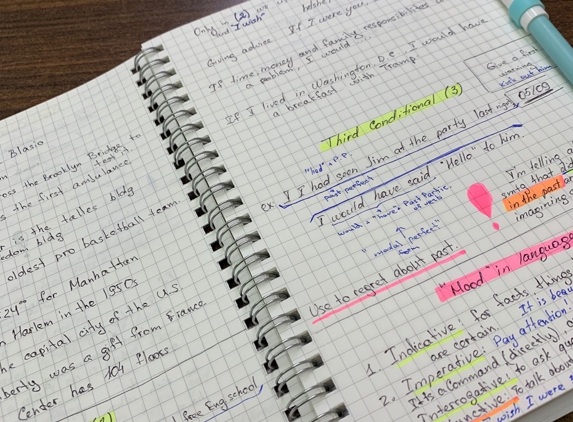 Blasio
oss the Brooklyn Bridge to
test it
s the first ambulance
is the talles bldg
edom bldg
oldest pro basketball team.
24th for Manhattan
n Harlem in the 1950s
the capital city of the U.S.
berty was a gift from France
Center has 104 floors
free Eng. school
Only in (2)
"I wish"
Giving advice If I were you,
If time, money and family responsibilities
a problem, I would
If I lived in Washington D.C. I would have
a breakfast with Tramp.
Give a first
warning
kick out him
05/09
Third Conditional (3)
"had" + P.P.
ex. If I had seen Jim at the party last night
past perfect
I would have said "Hello" to him.
would + "have" + Past Partic.
of verb
"modal perfect"
form
I'm telling a
in the past
imagining
Use to regret about past.
"Mood" in language
1. Indicative: for facts, things
are certain. It is beau
2. Imperative: Pay attention
It is a command (directly)
Interrogative: to ask
To talk about
wish I were